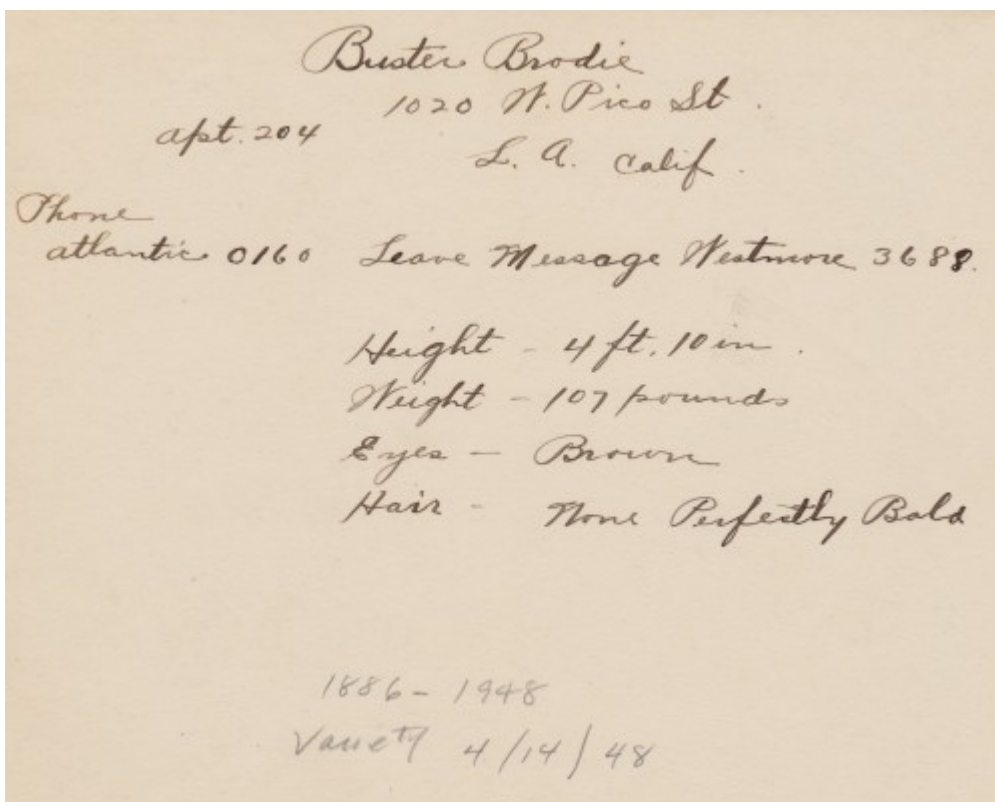 Buster Brodie
1020 W. Pico St.
apt. 204
L. A. Calif.
Phone
atlantic 0160 Leave Message Westmore 3688.
Height - 4 ft. 10 in.
Weight - 107 pounds
Eyes - Brown
Hair - None Perfectly Bald
1886 - 1948
Variety 4/14/48